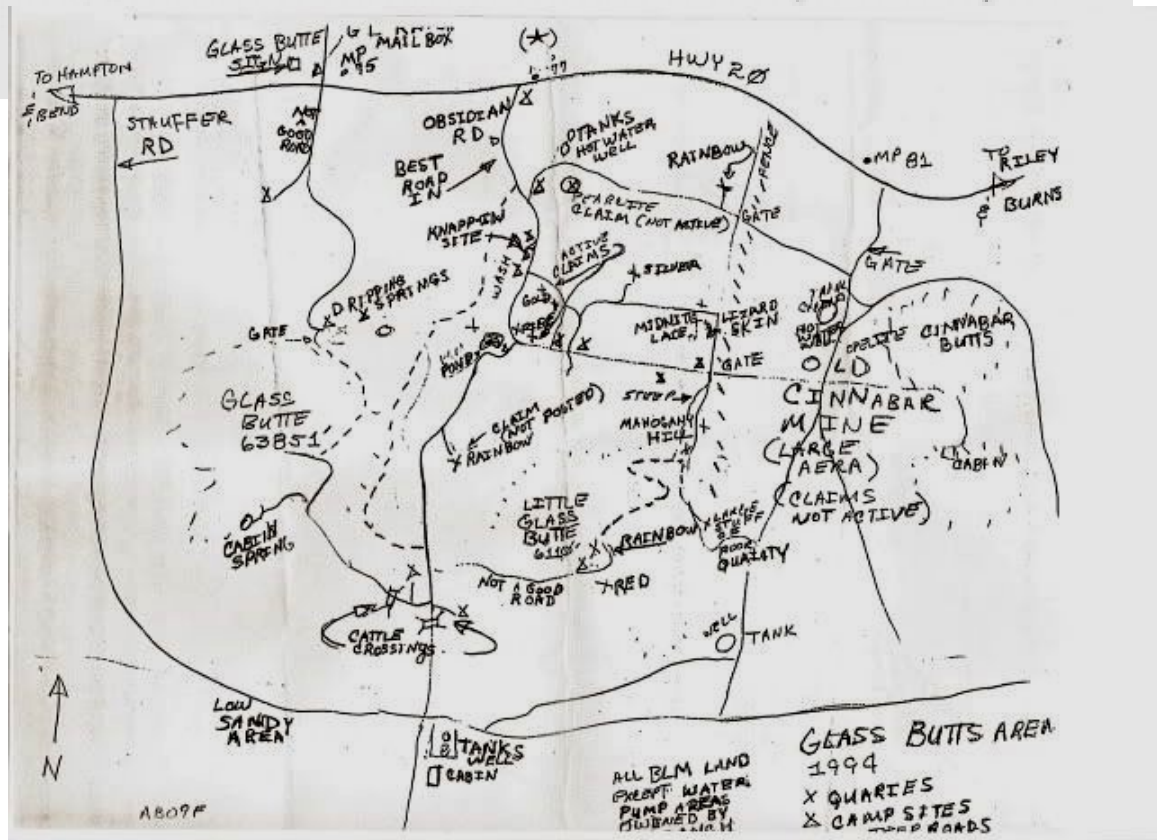 GLASS BUTTE
SIGN
MAILBOX
MP
(*)
HWY 20
TO HAMPTON
& BEND
STAUFFER
RD
NOT
GOOD
ROAD
OBSIDIAN
RD
BEST
ROAD
IN
TANKS
HOT WATER
WELL
RAINBOW
FENCE
MP 81
TO
RILEY
&
BURNS
PEARLITE
CLAIM (NOT ACTIVE)
GATE
GATE
KNAPP-IN
SITE
WASH
ACTIVE
CLAIMS
GOLD
SILVER
DRIPPING
SPRINGS
GATE
MIDNITE
LACE
LIZARD
SKIN
GATE
PONDS
OPELITE
CINNABAR
BUTTS
OLD
CINNABAR
MINE
(LARGE
AERA)
(CLAIMS
NOT ACTIVE)
CABIN
STEEP
MAHOGANY
HILL
GLASS
BUTTE
63851
CLAIM
(NOT POSTED)
RAINBOW
CABIN
SPRING
LITTLE
GLASS
BUTTE
RAINBOW
LARGE
STUFF
POOR
QUALITY
RED
NOT A GOOD
ROAD
CATTLE
CROSSINGS
WELL
TANK
LOW
SANDY
AREA
N
TANKS
WELLS
CABIN
A809F
ALL BLM LAND
EXCEPT WATER
PUMP AREAS
OWENED BY
GLASS BUTTS AREA
1994
X QUARIES
CAMP SITES
ROADS